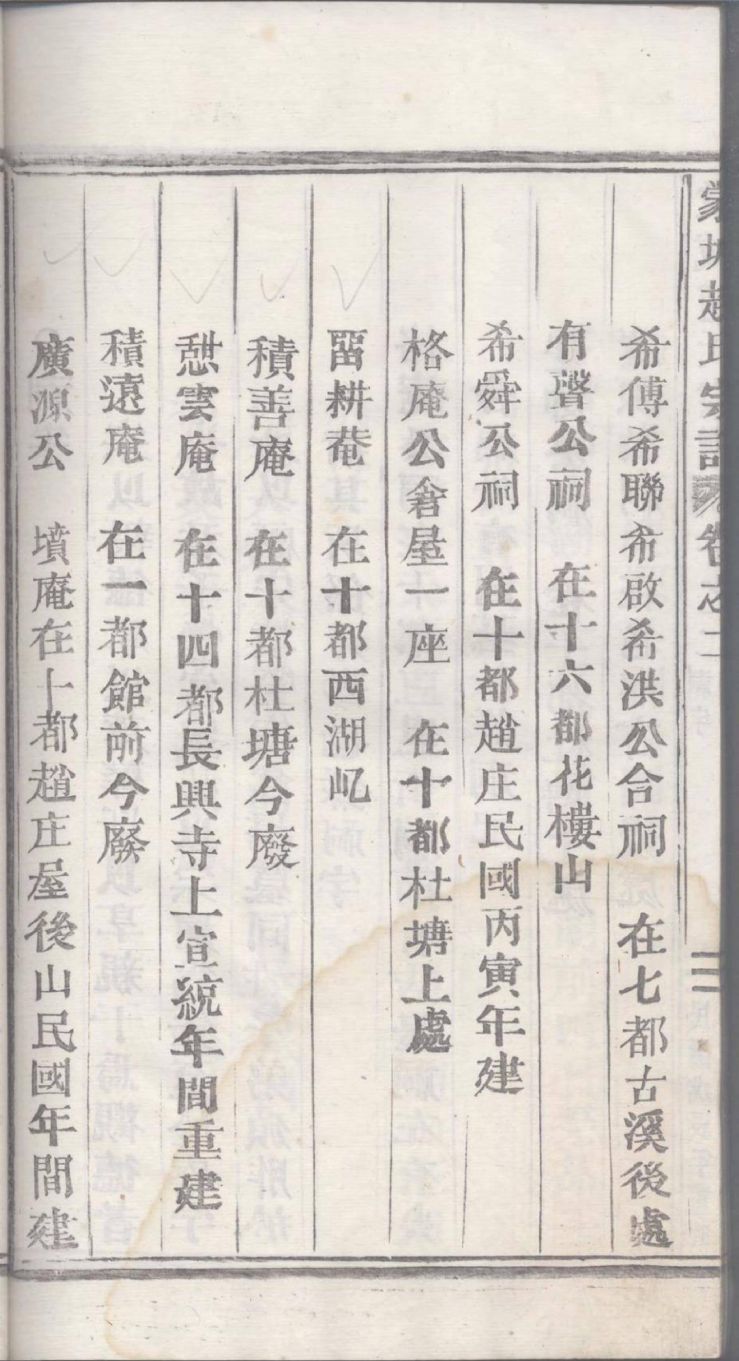 趙氏宗譜 卷之二
希傅希聯希啟希洪公合祠 在七都古溪後處
有聲公祠 在十六都花樓山
希舜公祠 在十都趙庄民國丙寅年建
格庵公倉屋一座 在十都杜塘上處
畱耕菴 在十都西湖
積善庵 在十都杜塘今廢
憇雲庵 在十四都長興寺上宣統年間重建
積遠庵 在一都館前今廢
廣源公 墳庵在十都趙庄屋後山民國年間建